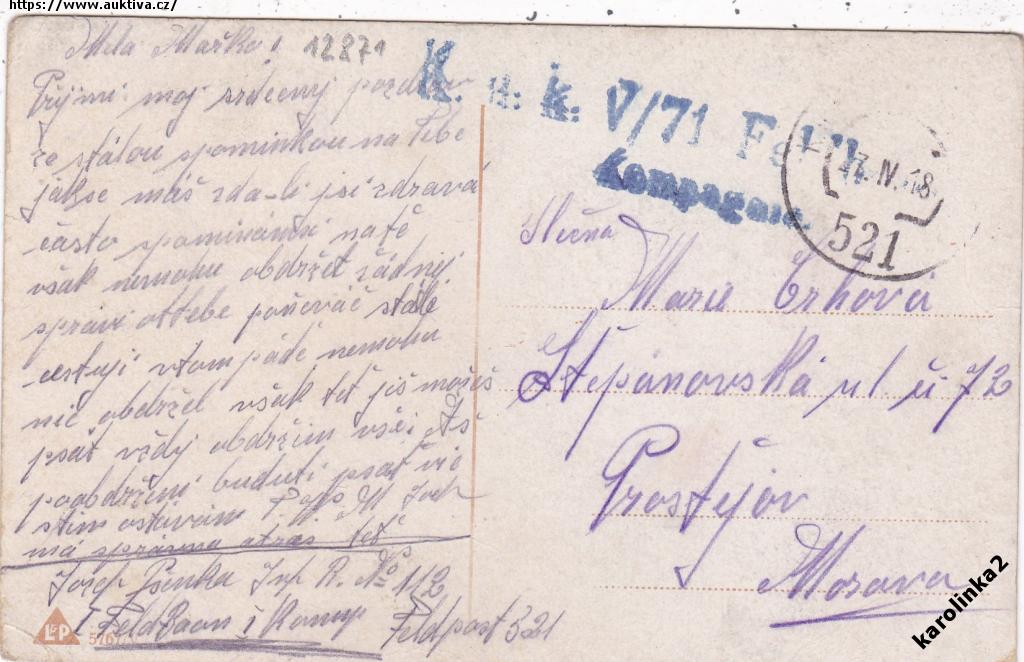 https://www.auktiva.cz/
Milá Maško!
12871
Přijmi moj srdečnyj pozdrav
ze stálou spominkou na Tebe
jakse máš zda-li jsi zdravá
často spomínám na tě
však nemohu obdržet žádnej
správi ottebe poňeváč stále
cestuji vtom páde nemohu
nic obdržet však teť jiš možeš
psát vždy obdržim všei. Aš
poobdrženi budu ti psat víc
stim ostávám
má správná atres teť
Josef Inf R. No 112
Feldbaon 1 Komp
Feldpost 321
L&P
K. u. k. V/71 Feld
Kompagnie.
IV. 18
521
Slečna
Marie Crhová
Štěpánovská ul č 72
Prostějov
Morava
karolinka2